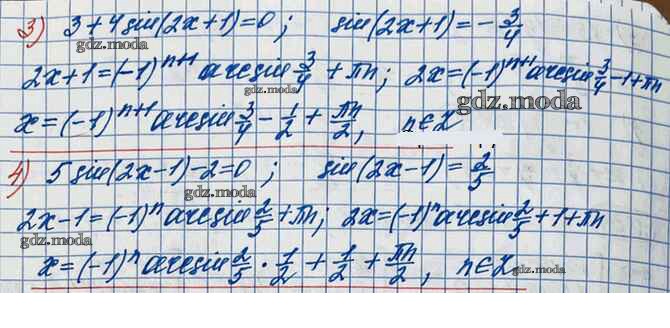 3) 3+4sin(2x+1)=0; sin(2x+1)=-3/4
gdz.moda
2x+1=(-1)^{n+1} arcsin 3/4 + πn; 2x=(-1)^{n+1} arcsin 3/4 -1+πn
gdz.moda gdz.moda
x=(-1)^{n+1} arcsin 3/4 - 1/2 + πn/2, n∈Z
gdz.moda
4) 5sin(2x-1)-2=0; sin(2x-1)=2/5
gdz.moda gdz.moda
2x-1=(-1)^n arcsin 2/5 + πn; 2x=(-1)^n arcsin 2/5 +1+πn
gdz.moda gdz.moda
x=(-1)^n arcsin 2/5 · 1/2 + 1/2 + πn/2, n∈Z
gdz.moda gdz.moda